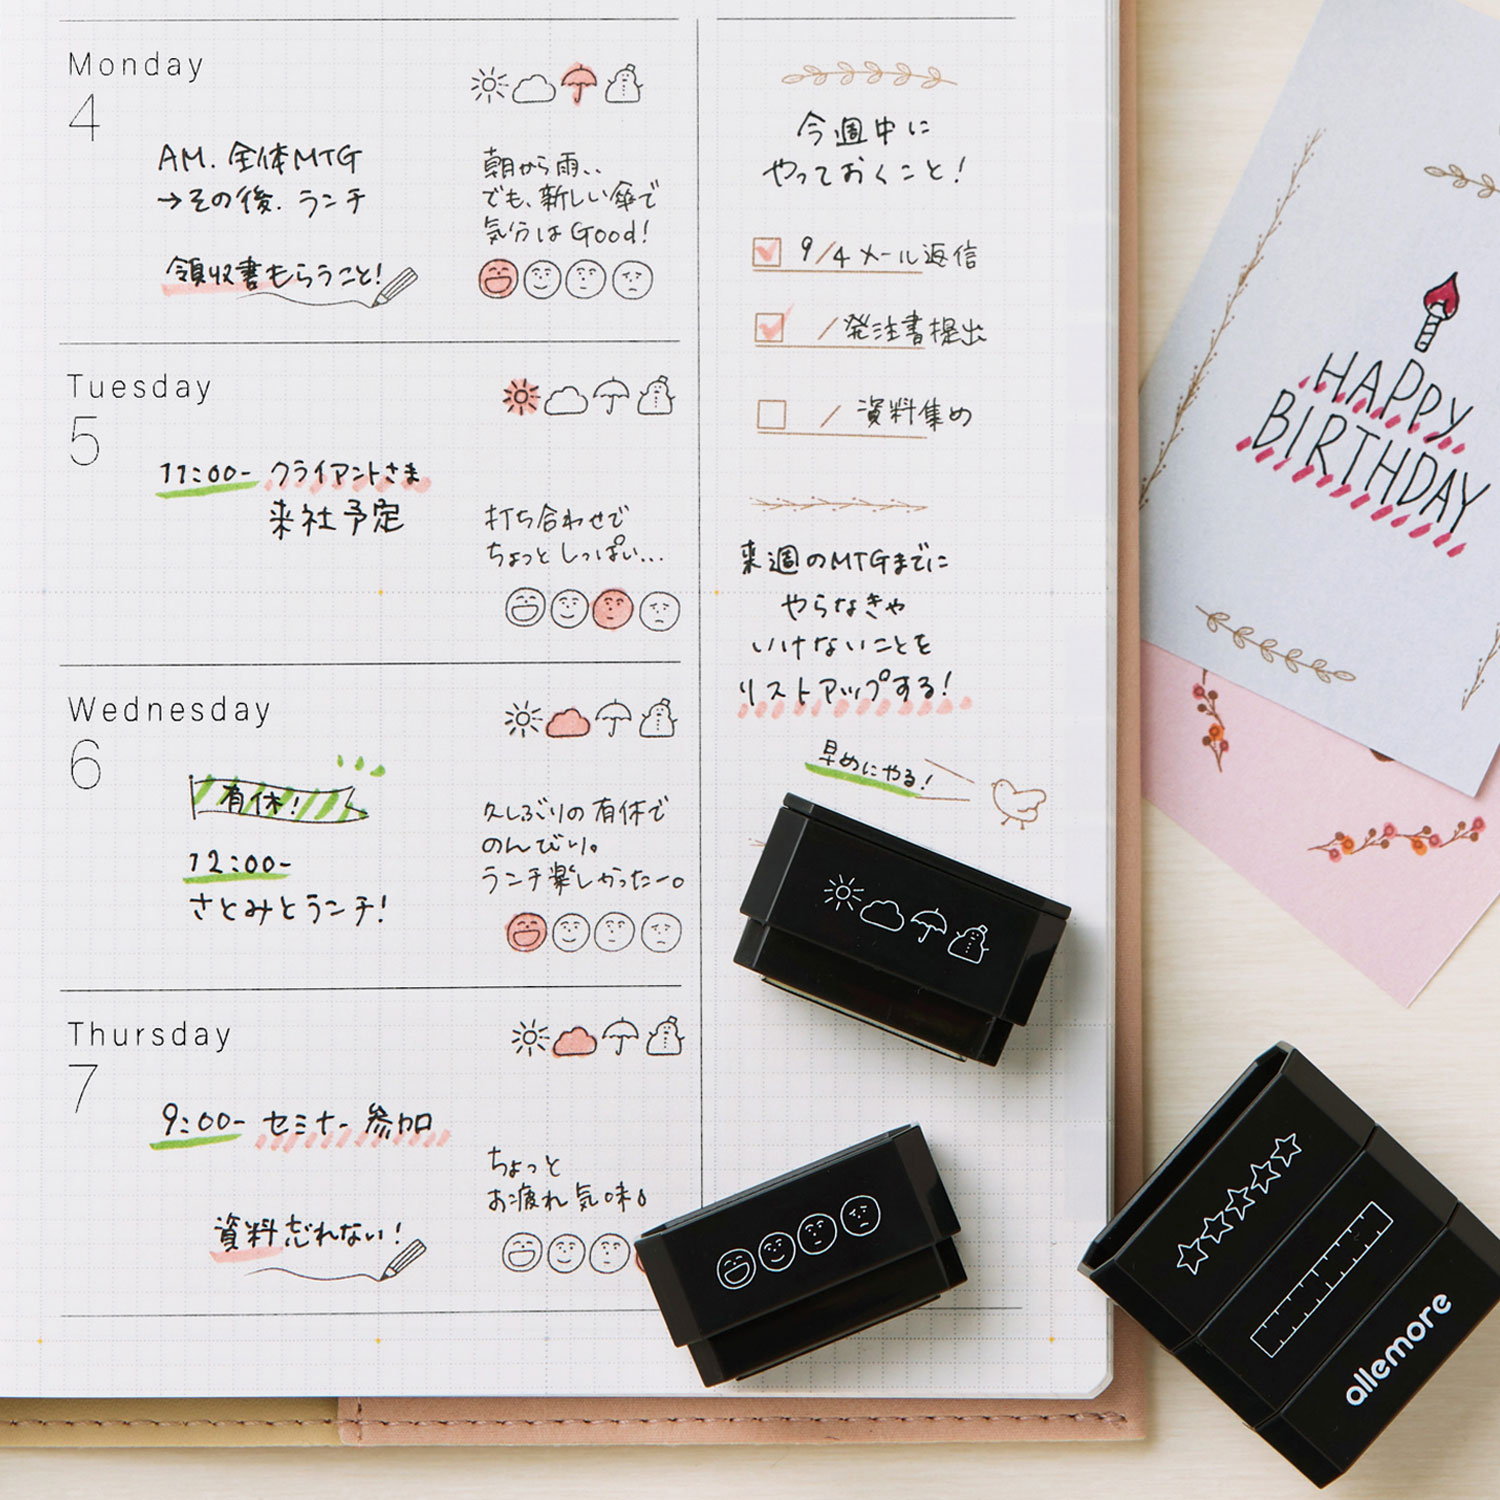 Monday
4
AM. 全体MTG
→その後. ランチ
領収書もらうこと!
朝から雨、、
でも、新しい傘で
気分は Good!
Tuesday
5
11:00- クライアントさま
来社予定
打ち合わせで
ちょっとしっぱい...
Wednesday
6
有休!
12:00-
さとみとランチ!
久しぶりの有休で
のんびり。
ランチ楽しかったー。
Thursday
7
9:00- セミナー参加
資料忘れない!
ちょっと
お疲れ気味。
今週中に
やっておくこと!
9/4 メール返信
/ 発注書提出
/ 資料集め
来週のMTGまでに
やらなきゃ
いけないことを
リストアップする!
早めにやる!
HAPPY
BIRTHDAY
allemore